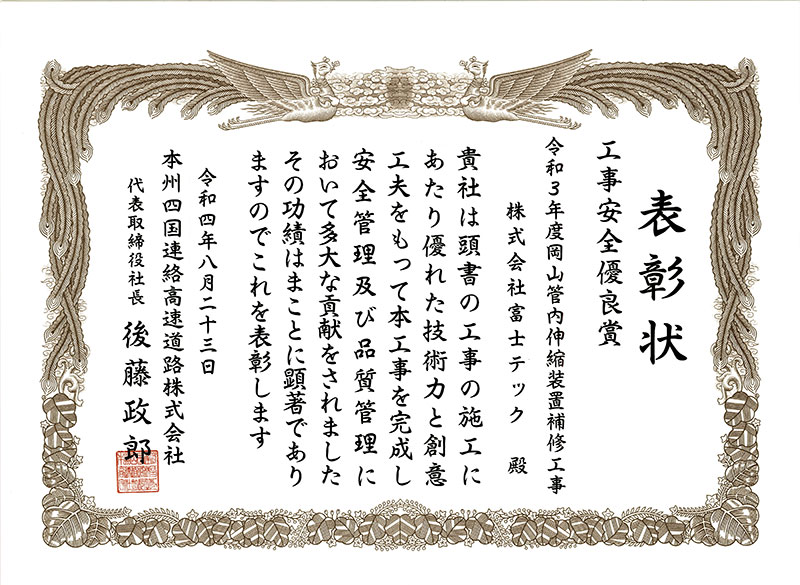 表彰状
工事安全優良賞
令和3年度岡山管内伸縮装置補修工事
株式会社富士テック 殿
貴社は頭書の工事の施工に
あたり優れた技術力と創意
工夫をもって本工事を完成し
安全管理及び品質管理に
おいて多大な貢献をされました
その功績はまことに顕著であり
ますのでこれを表彰します
令和四年八月二十三日
本州四国連絡高速道路株式会社
代表取締役社長 後藤政郎